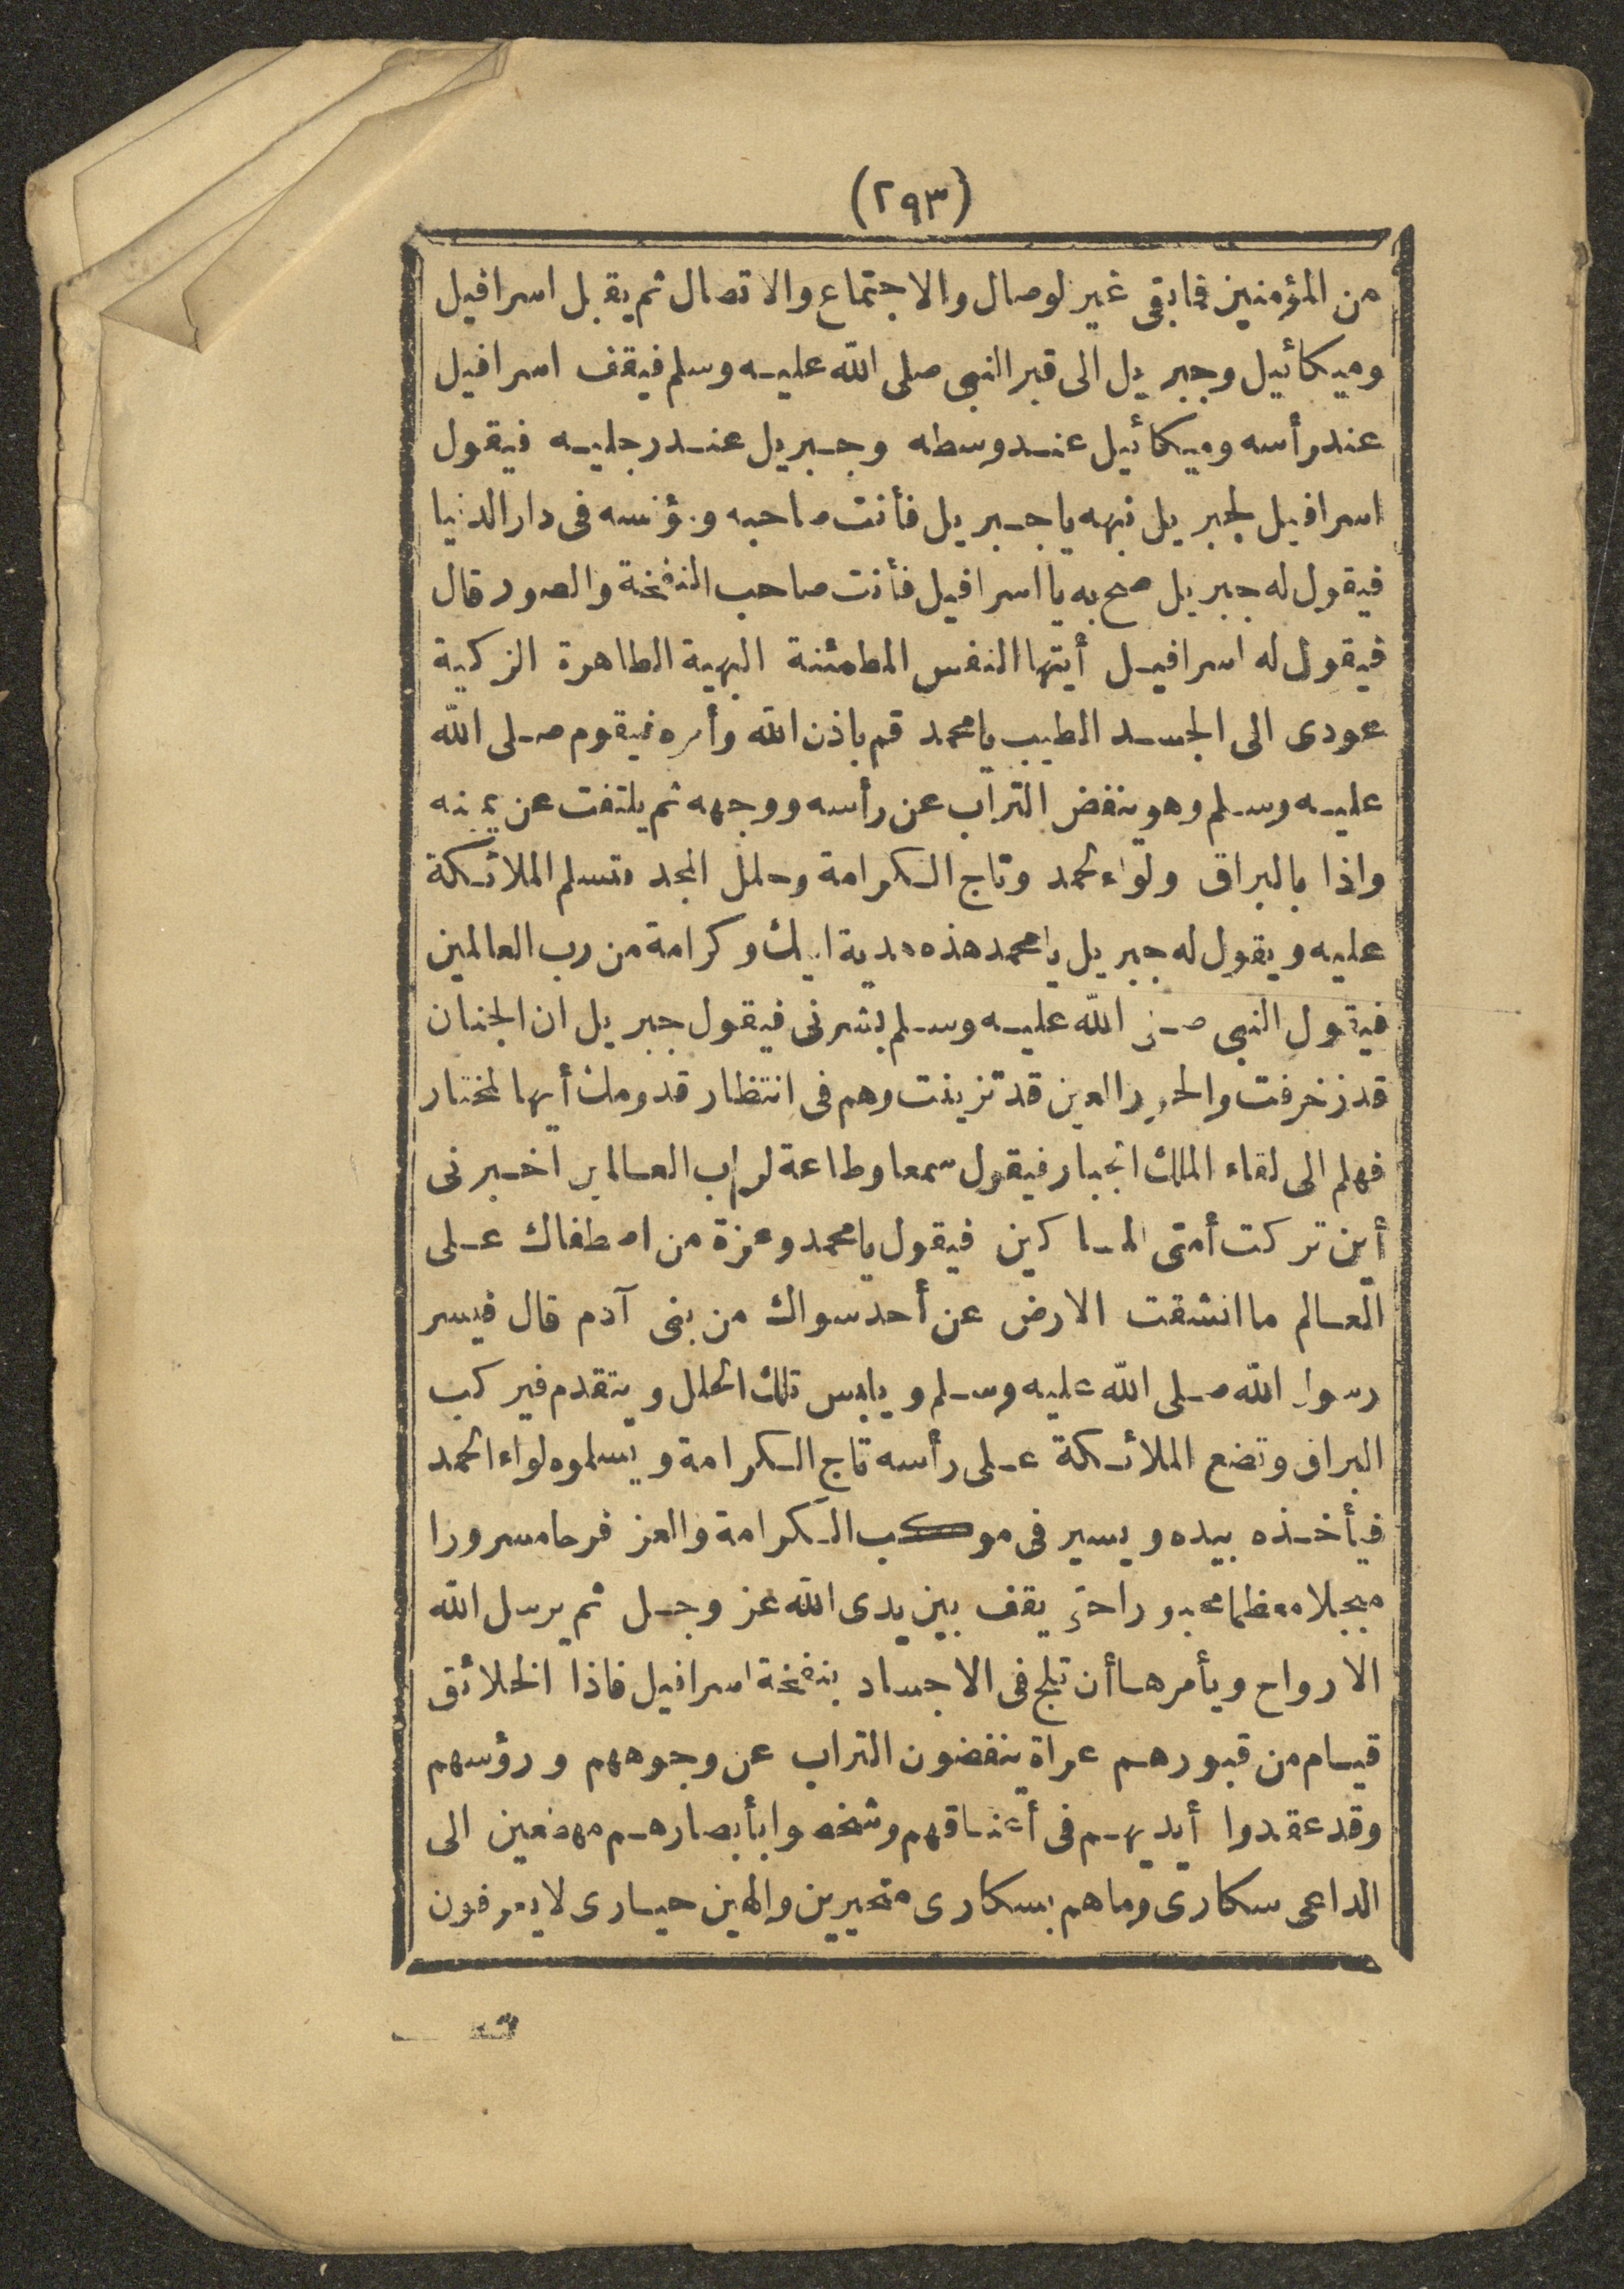 (٢٩٣)
من المؤمنين فما بقى غير لوصال والاجتماع والاتصال ثم يقبل اسرافيل
وميكائيل وجبريل الى قبر النبى صلى الله عليه وسلم فيقف اسرافيل
عند رأسه وميكائيل عند وسطه وجبريل عند رجليه فيقول
اسرافيل لجبريل نبهه يا جبريل فأنت صاحبه ومؤنسه فى دار الدنيا
فيقول له جبريل صح به يا اسرافيل فأنت صاحب النفخة والصور قال
فيقول له اسرافيل أيتها النفس المطمئنة البهية الطاهرة الزكية
عودى الى الجسد الطيب يا محمد قم باذن الله وأمره فيقوم صلى الله
عليه وسلم وهو ينفض التراب عن رأسه ووجهه ثم يلتفت عن يمينه
واذا بالبراق ولواء الحمد وتاج الكرامة وحلل المجد فتسلم الملائكة
عليه ويقول له جبريل يا محمد هذه هدية اليك وكرامة من رب العالمين
فيقول النبى صلى الله عليه وسلم بشرنى فيقول جبريل ان الجنان
قد زخرفت والحور العين قد تزينت وهم فى انتظار قدومك أيها المختار
فهلم الى لقاء الملك الجبار فيقول سمعا وطاعة لرب العالمين اخبرنى
أين تركت أمتى المساكين فيقول يا محمد وعزة من اصطفاك على
العالم ما انشقت الارض عن أحد سواك من بنى آدم قال فيسر
رسول الله صلى الله عليه وسلم ويلبس تلك الحلل ويتقدم فيركب
البراق وتضع الملائكة على رأسه تاج الكرامة ويسلموه لواء الحمد
فيأخذه بيده ويسير فى موكب الكرامة والعز فرحا مسرورا
مبجلا معظما محبورا حتى يقف بين يدى الله عز وجل ثم يرسل الله
الارواح ويأمرها أن تلج فى الاجساد بنفخة اسرافيل فاذا الخلائق
قيام من قبورهم عراة ينفضون التراب عن وجوههم ورؤسهم
وقد عقدوا أيديهم فى أعناقهم وشخصوا بأبصارهم مهطعين الى
الداعى سكارى وما هم بسكارى متحيرين والهين حيارى لا يعرفون